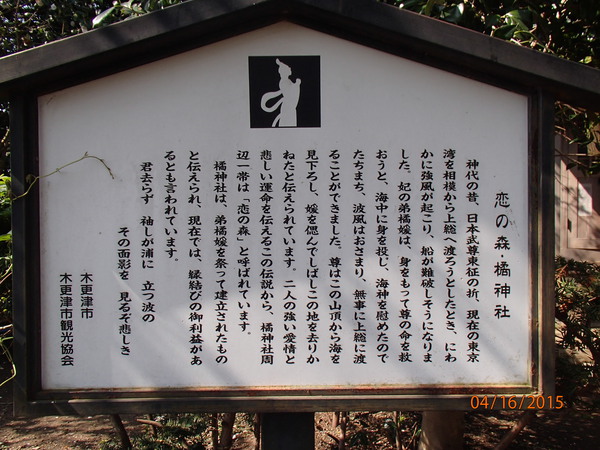 恋の森・橘神社
神代の昔、日本武尊東征の折、現在の東京
湾を相模から上総へ渡ろうとしたとき、にわ
かに強風が起こり、船が難破しそうになりま
した。妃の弟橘媛は、身をもって尊の命を救
おうと、海中に身を投じ、海神を慰めたので
たちまち、波風はおさまり、無事に上総に渡
ることができました。尊はこの山頂から海を
見下ろし、媛を偲んでしばしこの地を去りか
ねたと伝えられています。二人の強い愛情と
悲しい運命を伝えるこの伝説から、橘神社周
辺一帯は「恋の森」と呼ばれています。
橘神社は、弟橘媛を祭って建立されたもの
と伝えられ、現在では、縁結びの御利益があ
るとも言われています。
君去らず 袖しが浦に 立つ波の
その面影を 見るぞ悲しき
木更津市
木更津市観光協会
04/16/2015